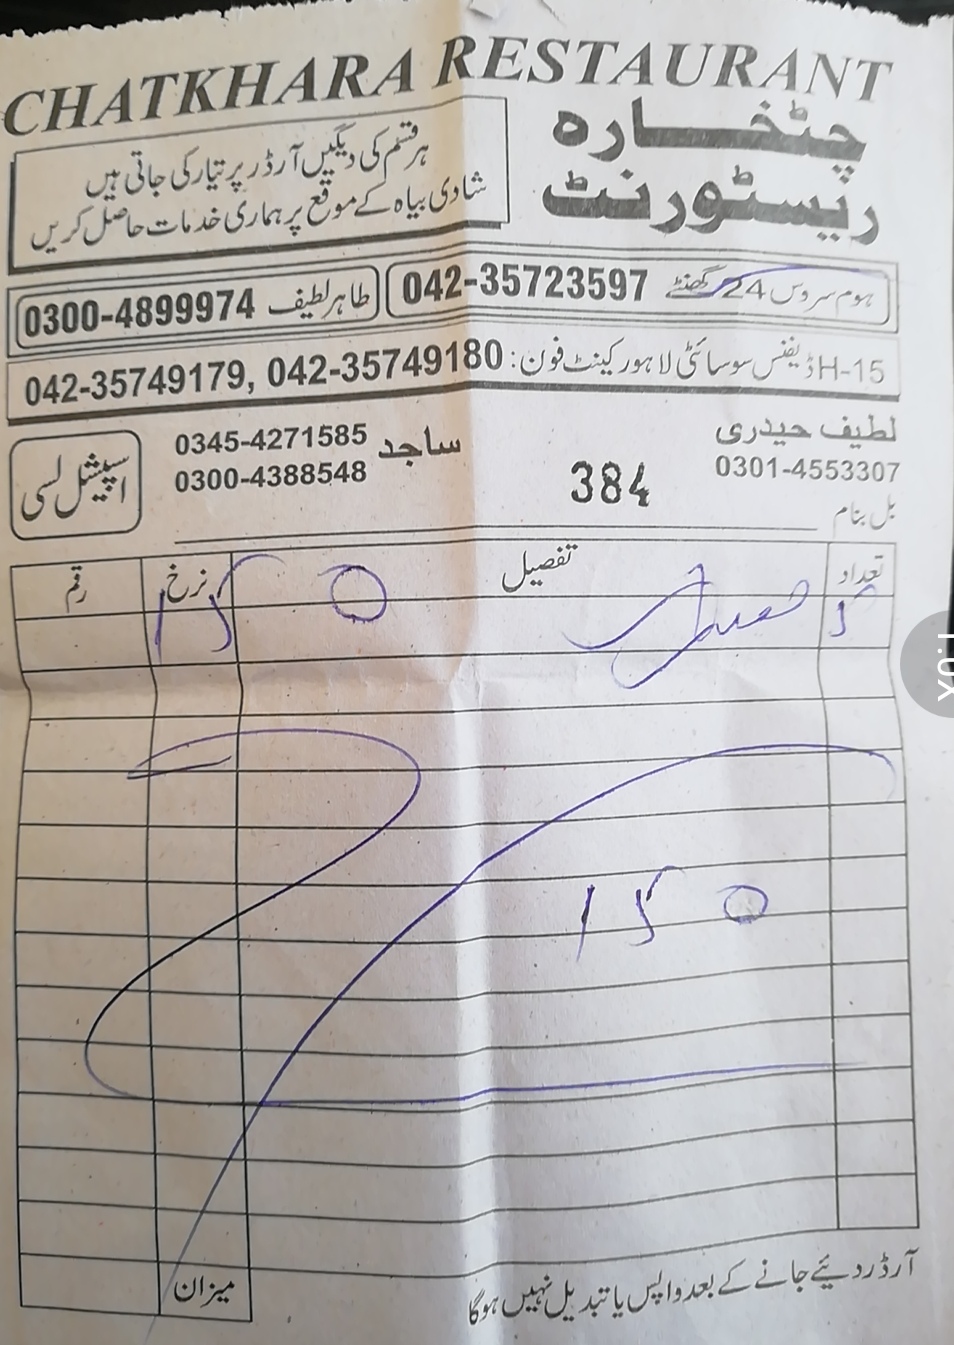 CHATKHARA RESTAURANT
چٹخارہ
ریسٹورنٹ
ہر قسم کی دیگیں آرڈر پر تیار کی جاتی ہیں
شادی بیاہ کے موقع پر ہماری خدمات حاصل کریں
ہوم سروس 24 گھنٹے 042-35723597
طاہر لطیف 0300-4899974
H-15 ڈیفنس سوسائٹی لاہور کینٹ فون: 042-35749179, 042-35749180
لطیف حیدری
0301-4553307
ساجد 0345-4271585
0300-4388548
اسپیشل لسی
384
بل بنام
تعداد تفصیل نرخ رقم
150
150
میزان
آرڈر دیئے جانے کے بعد واپس یا تبدیل نہیں ہوگا